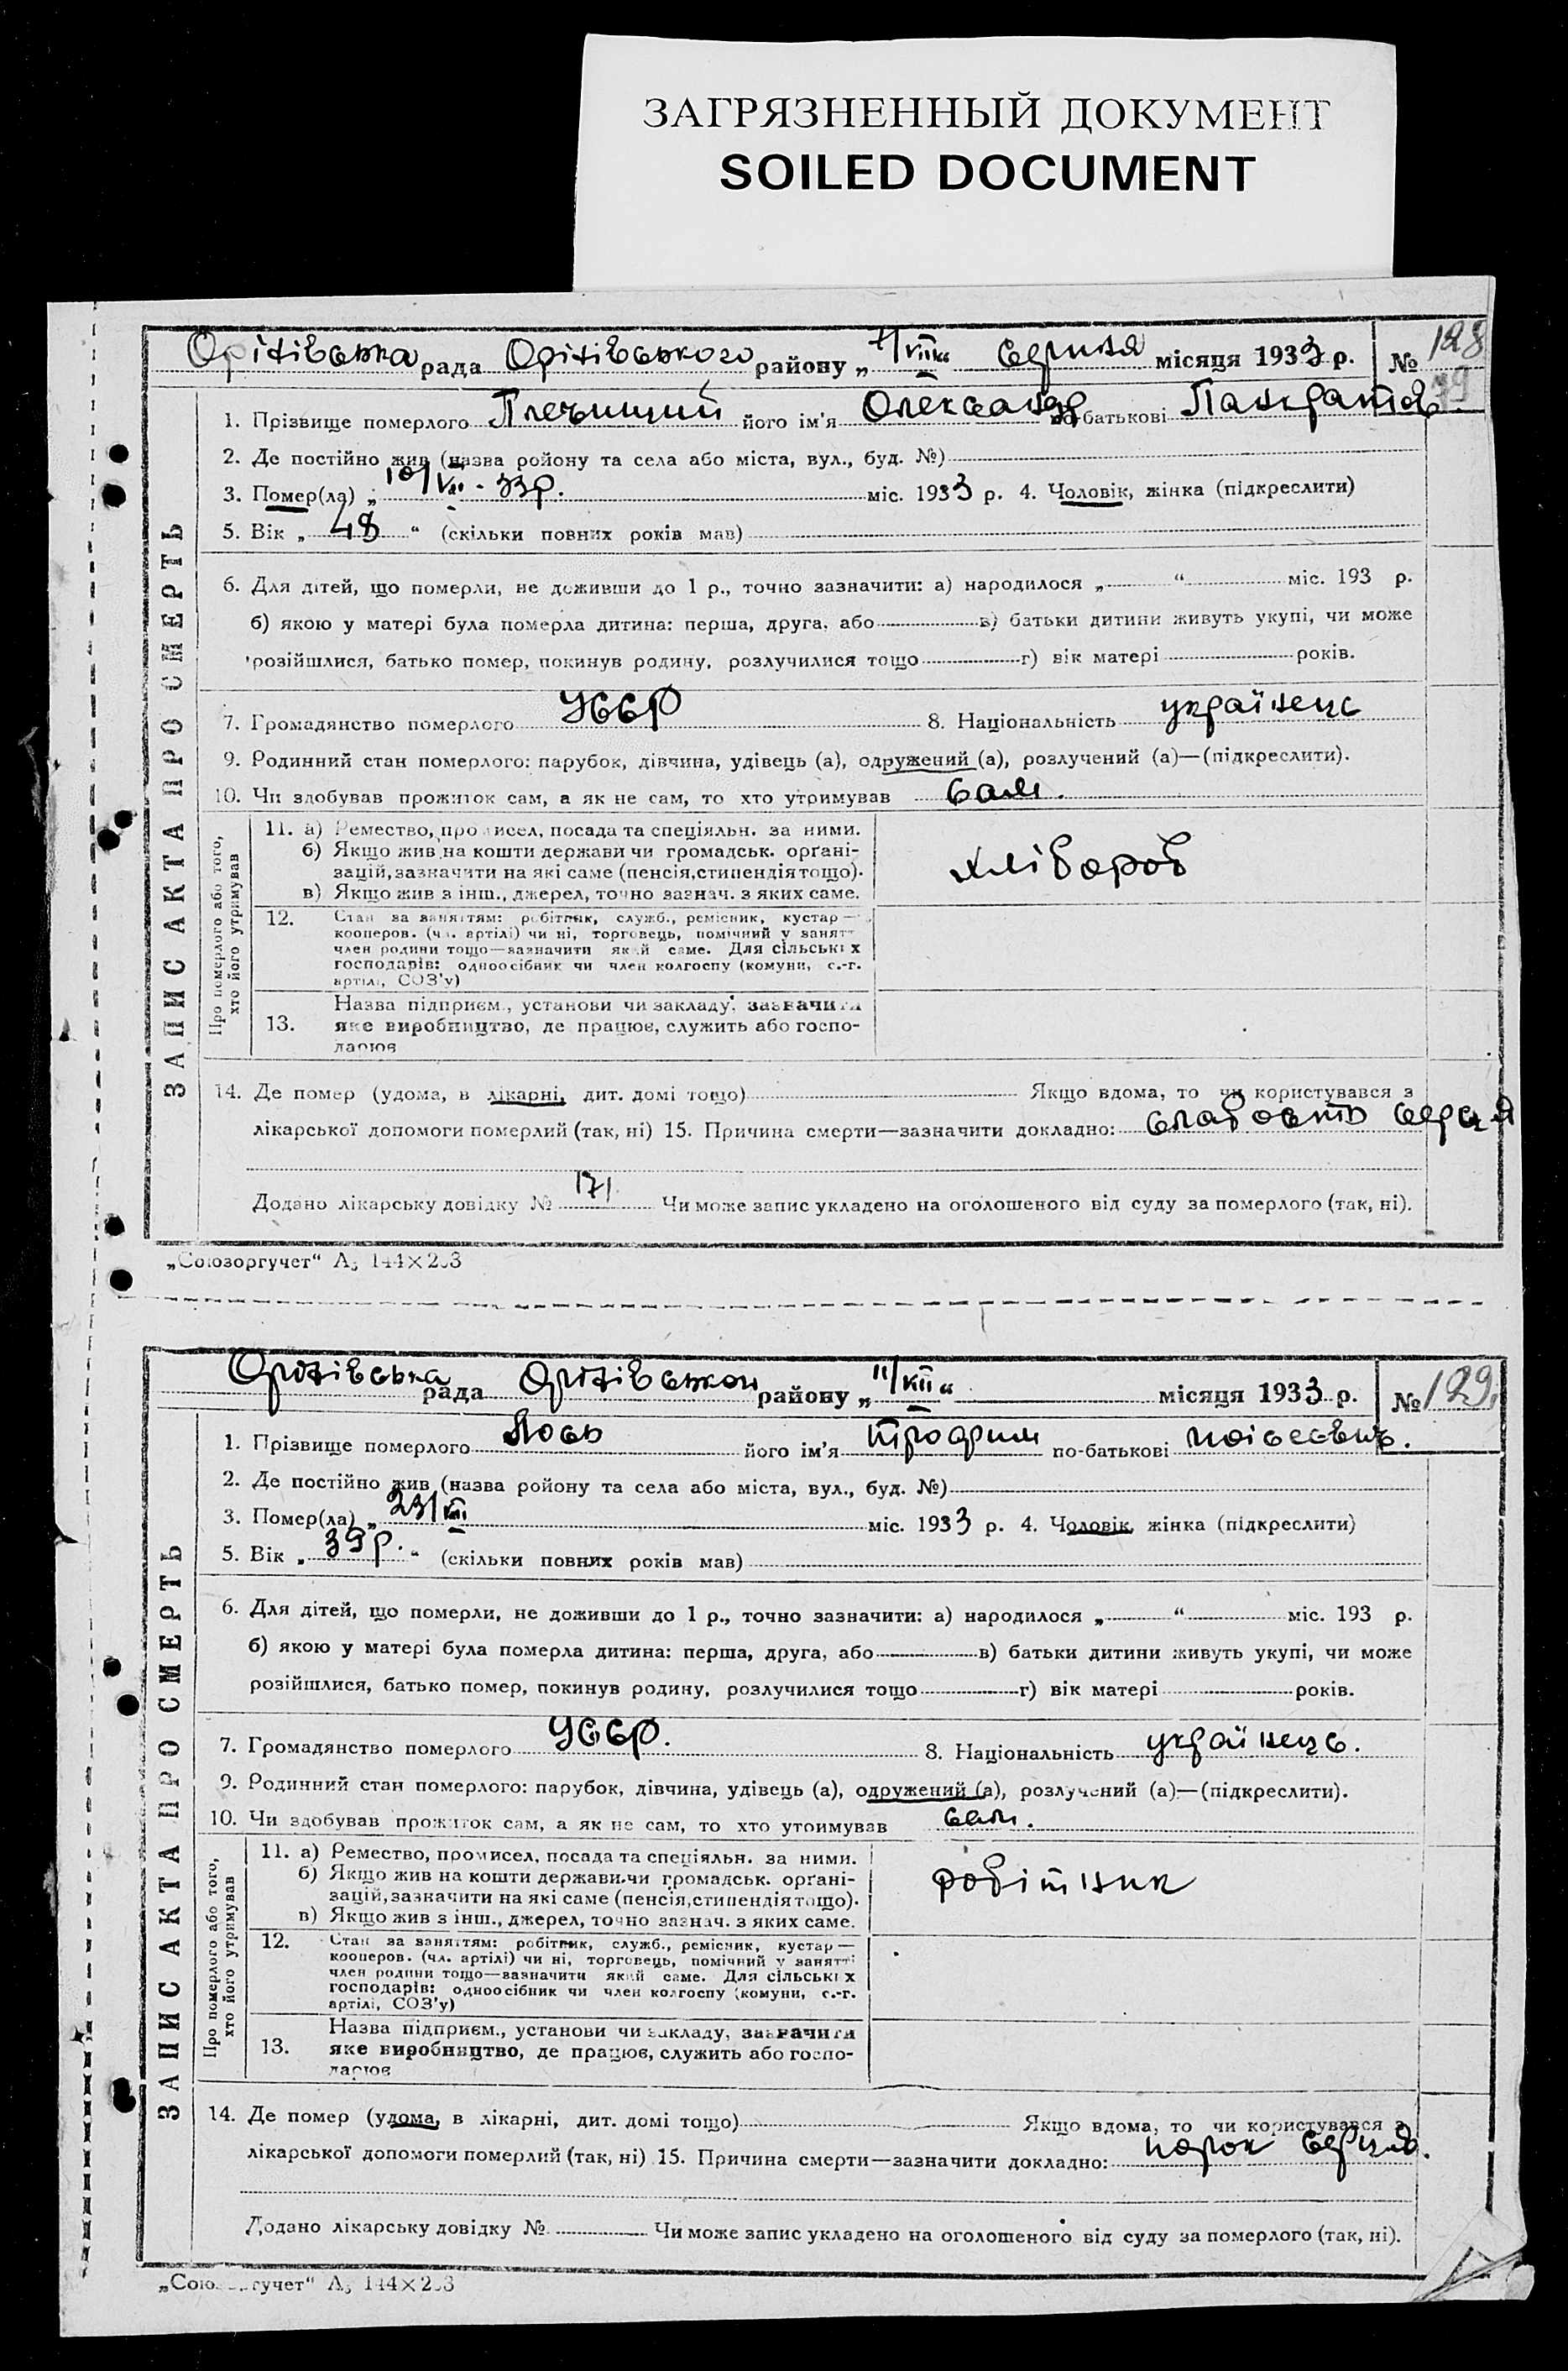 ЗАГРЯЗНЕННЫЙ ДОКУМЕНТ
SOILED DOCUMENT
Оріхівська рада Оріхівського району „ /VIII“ серпня місяця 1933 р. № 128
39
1. Прізвище померлого його ім'я Олександр по-батькові Панкратов.
2. Де постійно жив (назва ройону та села або міста, вул., буд. №)
3. Помер(ла) „10/VII - 33р. міс. 1933 р. 4. Чоловік, жінка (підкреслити)
5. Вік „ 48 “ (скільки повних років мав)
6. Для дітей, що померли, не доживши до 1 р., точно зазначити: а) народилося „ “ міс. 193 р.
б) якою у матері була померла дитина: перша, друга, або в) батьки дитини живуть укупі, чи може
розійшлися, батько помер, покинув родину, розлучилися тощо г) вік матері років.
7. Громадянство померлого УССР 8. Національність українець
9. Родинний стан померлого: парубок, дівчина, удівець (а), одружений (а), розлучений (а)—(підкреслити).
10. Чи здобував прожиток сам, а як не сам, то хто утримував сам.
ЗАПИС АКТА ПРО СМЕРТЬ
Про померлого або того,
хто його утримував
11. а) Ремество, промисел, посада та спеціяльн. за ними.
б) Якщо жив на кошти держави чи громадськ. орґані-
зацій, зазначити на які саме (пенсія, стипендія тощо).
в) Якщо жив з інш., джерел, точно зазнач. з яких саме.
хлібороб
12. Стан за заняттям: робітник, служб., ремісник, кустар—
кооперов. (чл. артілі) чи ні, торговець, помічний у занятт
член родини тощо—зазначити який саме. Для сільських
господарів: одноосібник чи член колгоспу (комуни, с.-г.
артілі, СОЗ'у)
13. Назва підприєм., установи чи закладу, зазначити
яке виробництво, де працює, служить або госпо-
дарює
14. Де помер (удома, в лікарні, дит. домі тощо) Якщо вдома, то чи користувався з
лікарської допомоги померлий (так, ні) 15. Причина смерти—зазначити докладно: слабость серця
Додано лікарську довідку № 171 Чи може запис укладено на оголошеного від суду за померлого (так, ні).
„Союзоргучет“ А5 144×203
Оріхівська рада Оріхівського району „11/VII“ місяця 1933 р. № 129
1. Прізвище померлого Лось його ім'я Трофим по-батькові Моісеєвич.
2. Де постійно жив (назва ройону та села або міста, вул., буд. №)
3. Помер(ла) „23/ міс. 1933 р. 4. Чоловік, жінка (підкреслити)
5. Вік „ 39р. “ (скільки повних років мав)
6. Для дітей, що померли, не доживши до 1 р., точно зазначити: а) народилося „ “ міс. 193 р.
б) якою у матері була померла дитина: перша, друга, або в) батьки дитини живуть укупі, чи може
розійшлися, батько помер, покинув родину, розлучилися тощо г) вік матері років.
7. Громадянство померлого УССР. 8. Національність українець.
9. Родинний стан померлого: парубок, дівчина, удівець (а), одружений (а), розлучений (а)—(підкреслити).
10. Чи здобував прожиток сам, а як не сам, то хто утримував сам.
ЗАПИС АКТА ПРО СМЕРТЬ
Про померлого або того,
хто його утримував
11. а) Ремество, промисел, посада та спеціяльн. за ними.
б) Якщо жив на кошти держави чи громадськ. орґані-
зацій, зазначити на які саме (пенсія, стипендія тощо).
в) Якщо жив з інш., джерел, точно зазнач. з яких саме.
робітник
12. Стан за заняттям: робітник, служб., ремісник, кустар—
кооперов. (чл. артілі) чи ні, торговець, помічний у занятті
член родини тощо—зазначити який саме. Для сільських
господарів: одноосібник чи член колгоспу (комуни, с.-г.
артілі, СОЗ'у)
13. Назва підприєм., установи чи закладу, зазначити
яке виробництво, де працює, служить або госпо-
дарює
14. Де помер (удома, в лікарні, дит. домі тощо) Якщо вдома, то чи користувався з
лікарської допомоги померлий (так, ні) 15. Причина смерти—зазначити докладно: порок серця.
Додано лікарську довідку № Чи може запис укладено на оголошеного від суду за померлого (так, ні).
„Союзоргучет“ А5 144×203